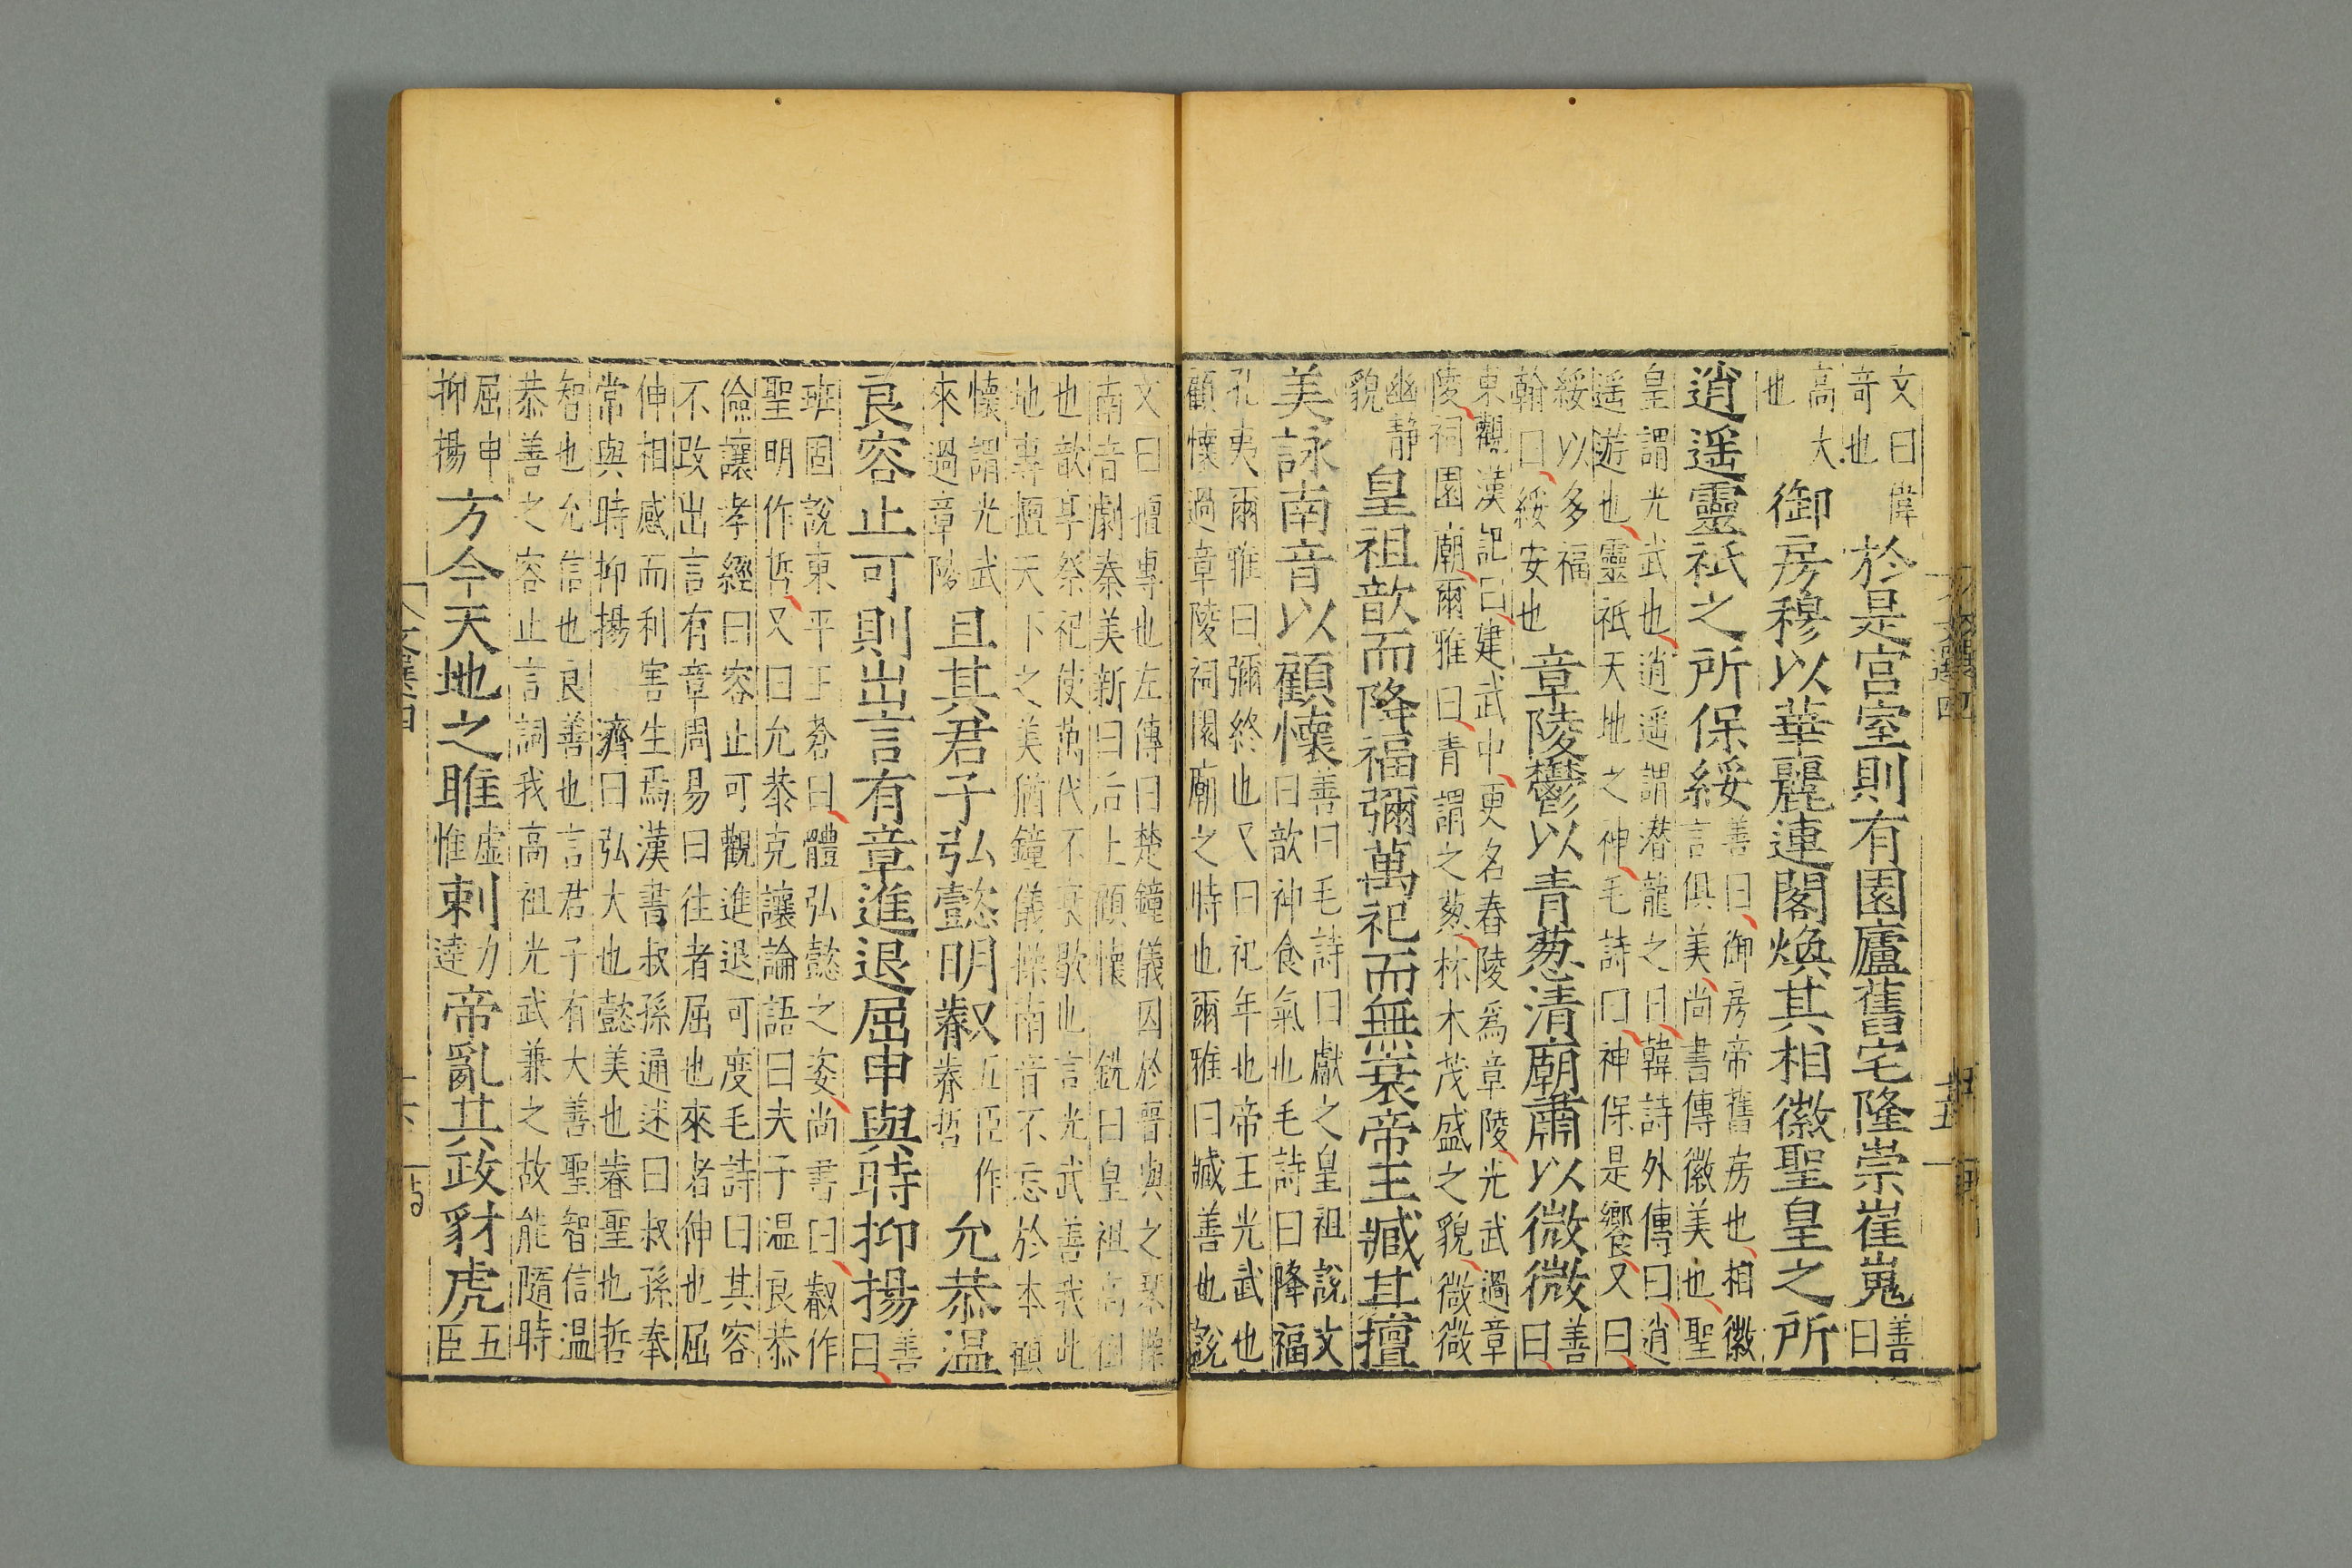 文選四
廿五
文曰偉
奇也
於是宮室則有園廬舊宅隆崇崔嵬
善
曰
高大
也
御房穆以華麗連閣煥其相徽聖皇之所
逍遥靈祇之所保綏
善曰御房帝舊房也相徽
言俱美尚書傳徽美也聖
皇謂光武也逍遥謂潜龍之日韓詩外傳曰逍
遥遊也靈祇天地之神毛詩曰神保是饗又曰
綏以多福
翰曰綏安也
章陵鬱以青葱清廟肅以微微
善
曰
東觀漢記曰建武中更名舂陵爲章陵光武過章
陵祠園廟爾雅曰青謂之葱林木茂盛之貌微微
幽静
貌
皇祖歆而降福彌萬祀而無衰帝王臧其擅
美詠南音以顧懷
善曰毛詩曰獻之皇祖說文
曰歆神食氣也毛詩曰降福
孔夷爾雅曰彌終也又曰祀年也帝王光武也
顧懷過章陵祠園廟之時也爾雅曰臧善也說
文曰擅專也左傳曰楚鐘儀囚於晉與之琴操
南音劇秦美新曰后土顧懷 銑曰皇祖高祖
也歆享祭祀使萬代不衰歇也言光武善我此
地專擅天下之美猶鐘儀操南音不忘於本顧
懷謂光武
來過章陵
且其君子弘懿明叡
五臣作
眷哲
允恭温
良容止可則出言有章進退屈申與時抑揚
善
曰
班固說東平王蒼曰體弘懿之姿尚書曰叡作
聖明作哲又曰允恭克讓論語曰夫子温良恭
儉讓孝經曰容止可觀進退可度毛詩曰其容
不改出言有章周易曰往者屈也來者伸也屈
伸相感而利害生焉漢書叔孫通述曰叔孫奉
常與時抑揚 濟曰弘大也懿美也眷聖也哲
智也允信也良善也言君子有大善聖智信温
恭善之容止言詞我高祖光武兼之故能隨時
屈申
抑揚
方今天地之睢
虚
惟
剌
力
達
帝亂其政豺虎
五
臣